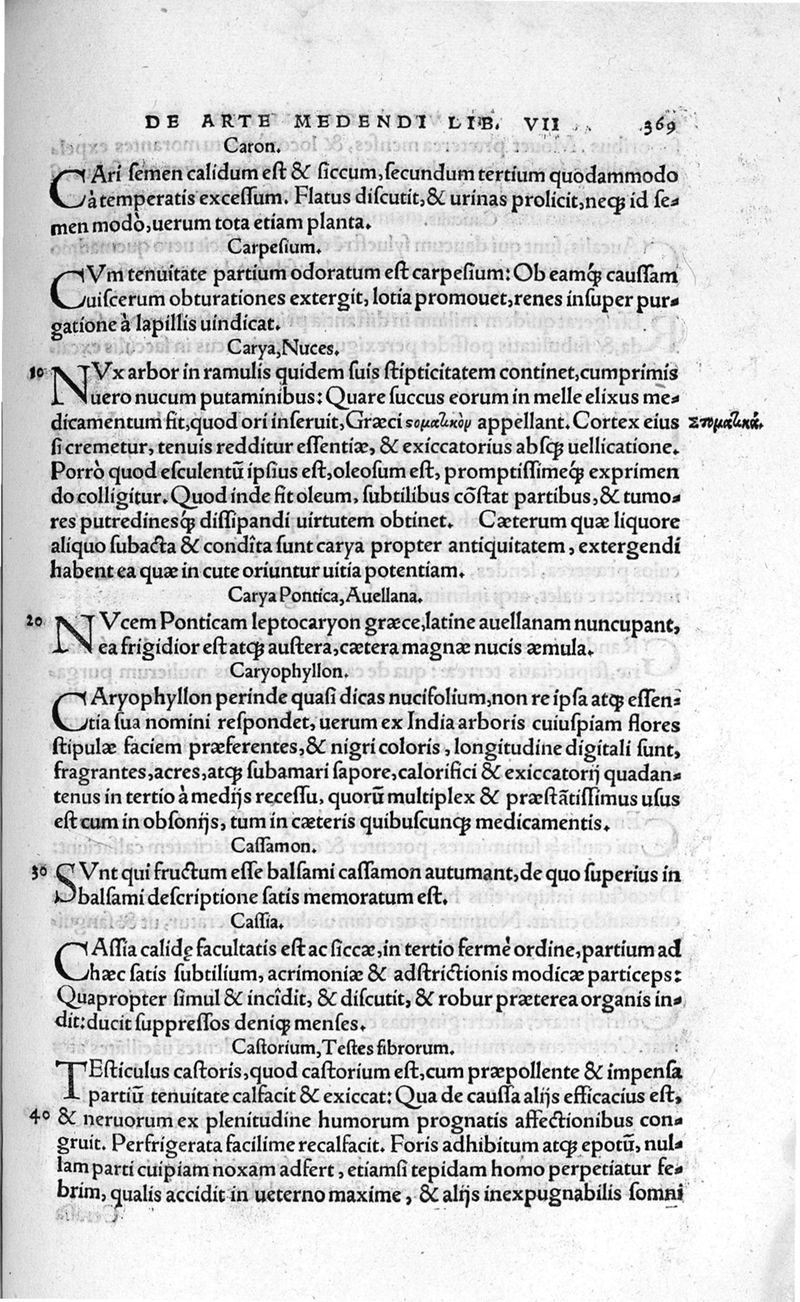 DE ARTE MEDENDI LIB. VII 369
Caron.
CAri ſemen calidum eſt & ſiccum, ſecundum tertium quodammodo
à temperatis exceſſum. Flatus diſcutit, & urinas prolicit, neqꝫ id ſe⸗
men modò, uerum tota etiam planta.
Carpeſium.
CVm tenuitate partium odoratum eſt carpeſium: Ob eamqꝫ́ cauſſam
uiſcerum obturationes extergit, lotia promouet, renes inſuper pur⸗
gatione à lapillis uindicat.
Carya, Nuces.
10 NVx arbor in ramulis quidem ſuis ſtipticitatem continet, cumprimis
uero nucum putaminibus: Quare ſuccus eorum in melle elixus me⸗
dicamentum fit, quod ori inſeruit, Græci ϛοματικὸν appellant. Cortex eius Στοματικά.
ſi cremetur, tenuis redditur eſſentiæ, & exiccatorius abſqꝫ uellicatione.
Porrò quod eſculentũ ipſius eſt, oleoſum eſt, promptiſſimeqꝫ́ exprimen
do colligitur. Quod inde fit oleum, ſubtilibus cõſtat partibus, & tumo⸗
res putredinesqꝫ́ diſſipandi uirtutem obtinet. Cæterum quæ liquore
aliquo ſubacta & condîta ſunt carya propter antiquitatem, extergendi
habent ea quæ in cute oriuntur uitia potentiam.
Carya Pontica, Auellana.
20 NVcem Ponticam leptocaryon græce, latine auellanam nuncupant,
ea frigidior eſt atqꝫ auſtera, cætera magnæ nucis æmula.
Caryophyllon.
CAryophyllon perinde quaſi dicas nucifolium, non re ipſa atqꝫ eſſen⸗
tia ſua nomini reſpondet, uerum ex India arboris cuiuſpiam flores
ſtipulæ faciem præferentes, & nigri coloris, longitudine digitali ſunt,
fragrantes, acres, atqꝫ ſubamari ſapore, calorifici & exiccatorij quadan⸗
tenus in tertio à medijs receſſu, quorũ multiplex & præſtãtiſſimus uſus
eſt cum in obſonijs, tum in cæteris quibuſcunqꝫ medicamentis.
Caſſamon.
30 SVnt qui fructum eſſe balſami caſſamon autumant, de quo ſuperius in
balſami deſcriptione ſatis memoratum eſt.
Caſſia.
CAſſia calidę facultatis eſt ac ſiccæ, in tertio fermè ordine, partium ad
hæc ſatis ſubtilium, acrimoniæ & adſtrictionis modicæ particeps:
Quapropter ſimul & incîdit, & diſcutit, & robur præterea organis in⸗
dit: ducit ſuppreſſos deniqꝫ menſes.
Caſtorium, Teſtes fibrorum.
TEſticulus caſtoris, quod caſtorium eſt, cum præpollente & impenſa
partiũ tenuitate calfacit & exiccat: Qua de cauſſa alijs efficacius eſt,
40 & neruorum ex plenitudine humorum prognatis affectionibus con⸗
gruit. Perfrigerata facilime recalfacit. Foris adhibitum atqꝫ epotũ, nul⸗
lam parti cuipiam noxam adfert, etiamſi tepidam homo perpetiatur fe⸗
brim, qualis accidit in ueterno maxime, & alijs inexpugnabilis ſomni